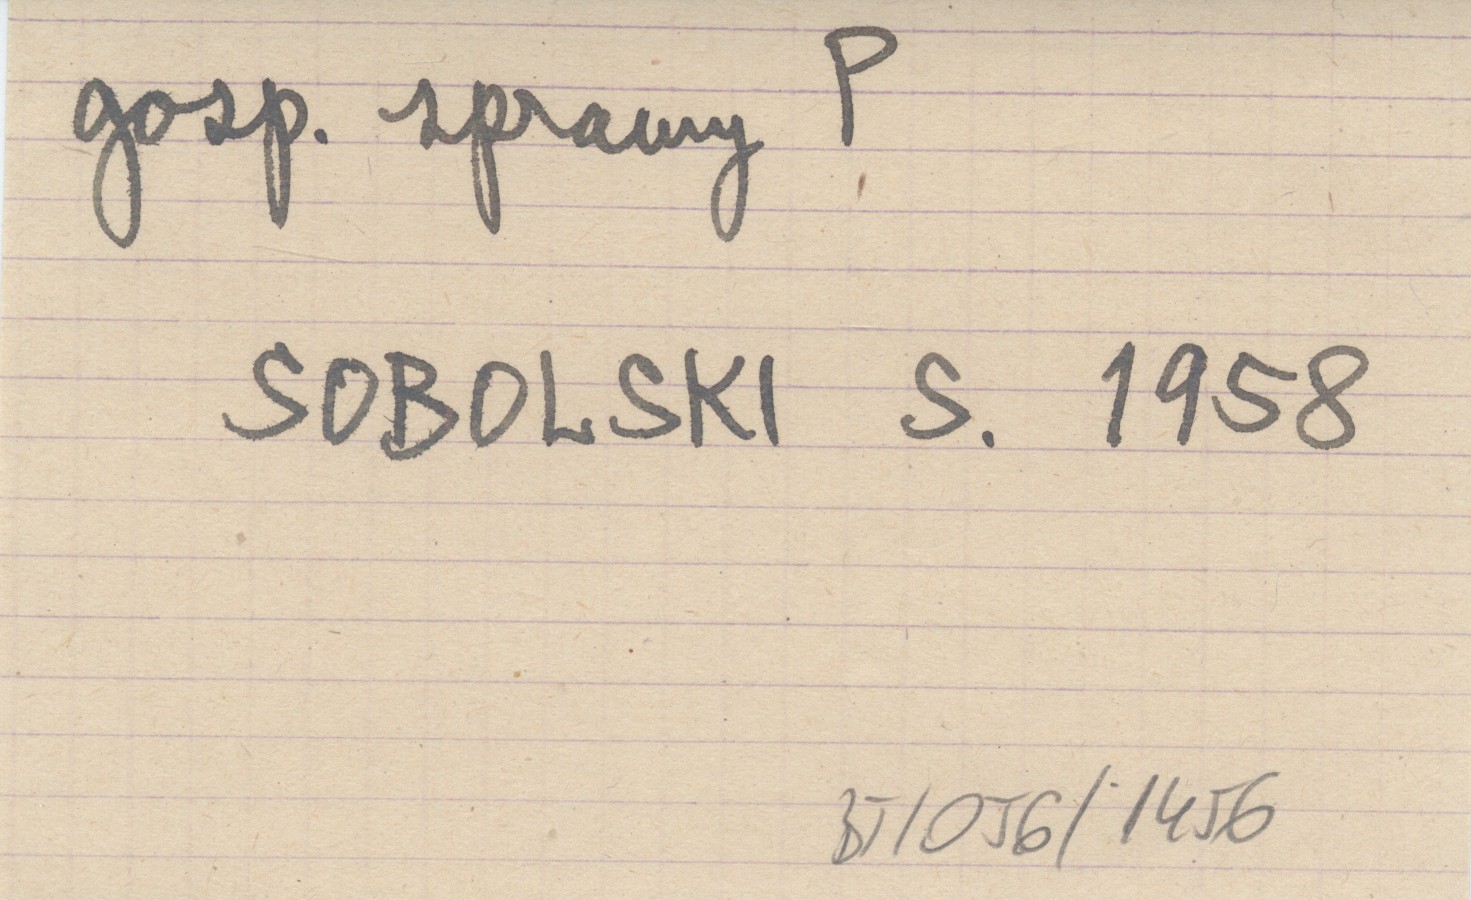 gosp. sprawy P
SOBOLSKI S. 1958
BT/056/1456